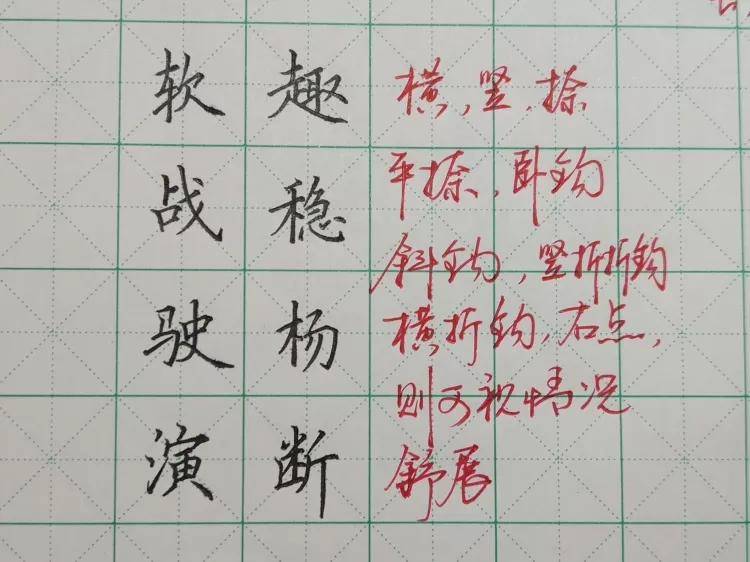 软 趣 横,竖,捺
平捺,卧钩
战 稳
斜钩,竖折折钩
驶 杨 横折钩,右点,
则可视情况
演 断 舒展